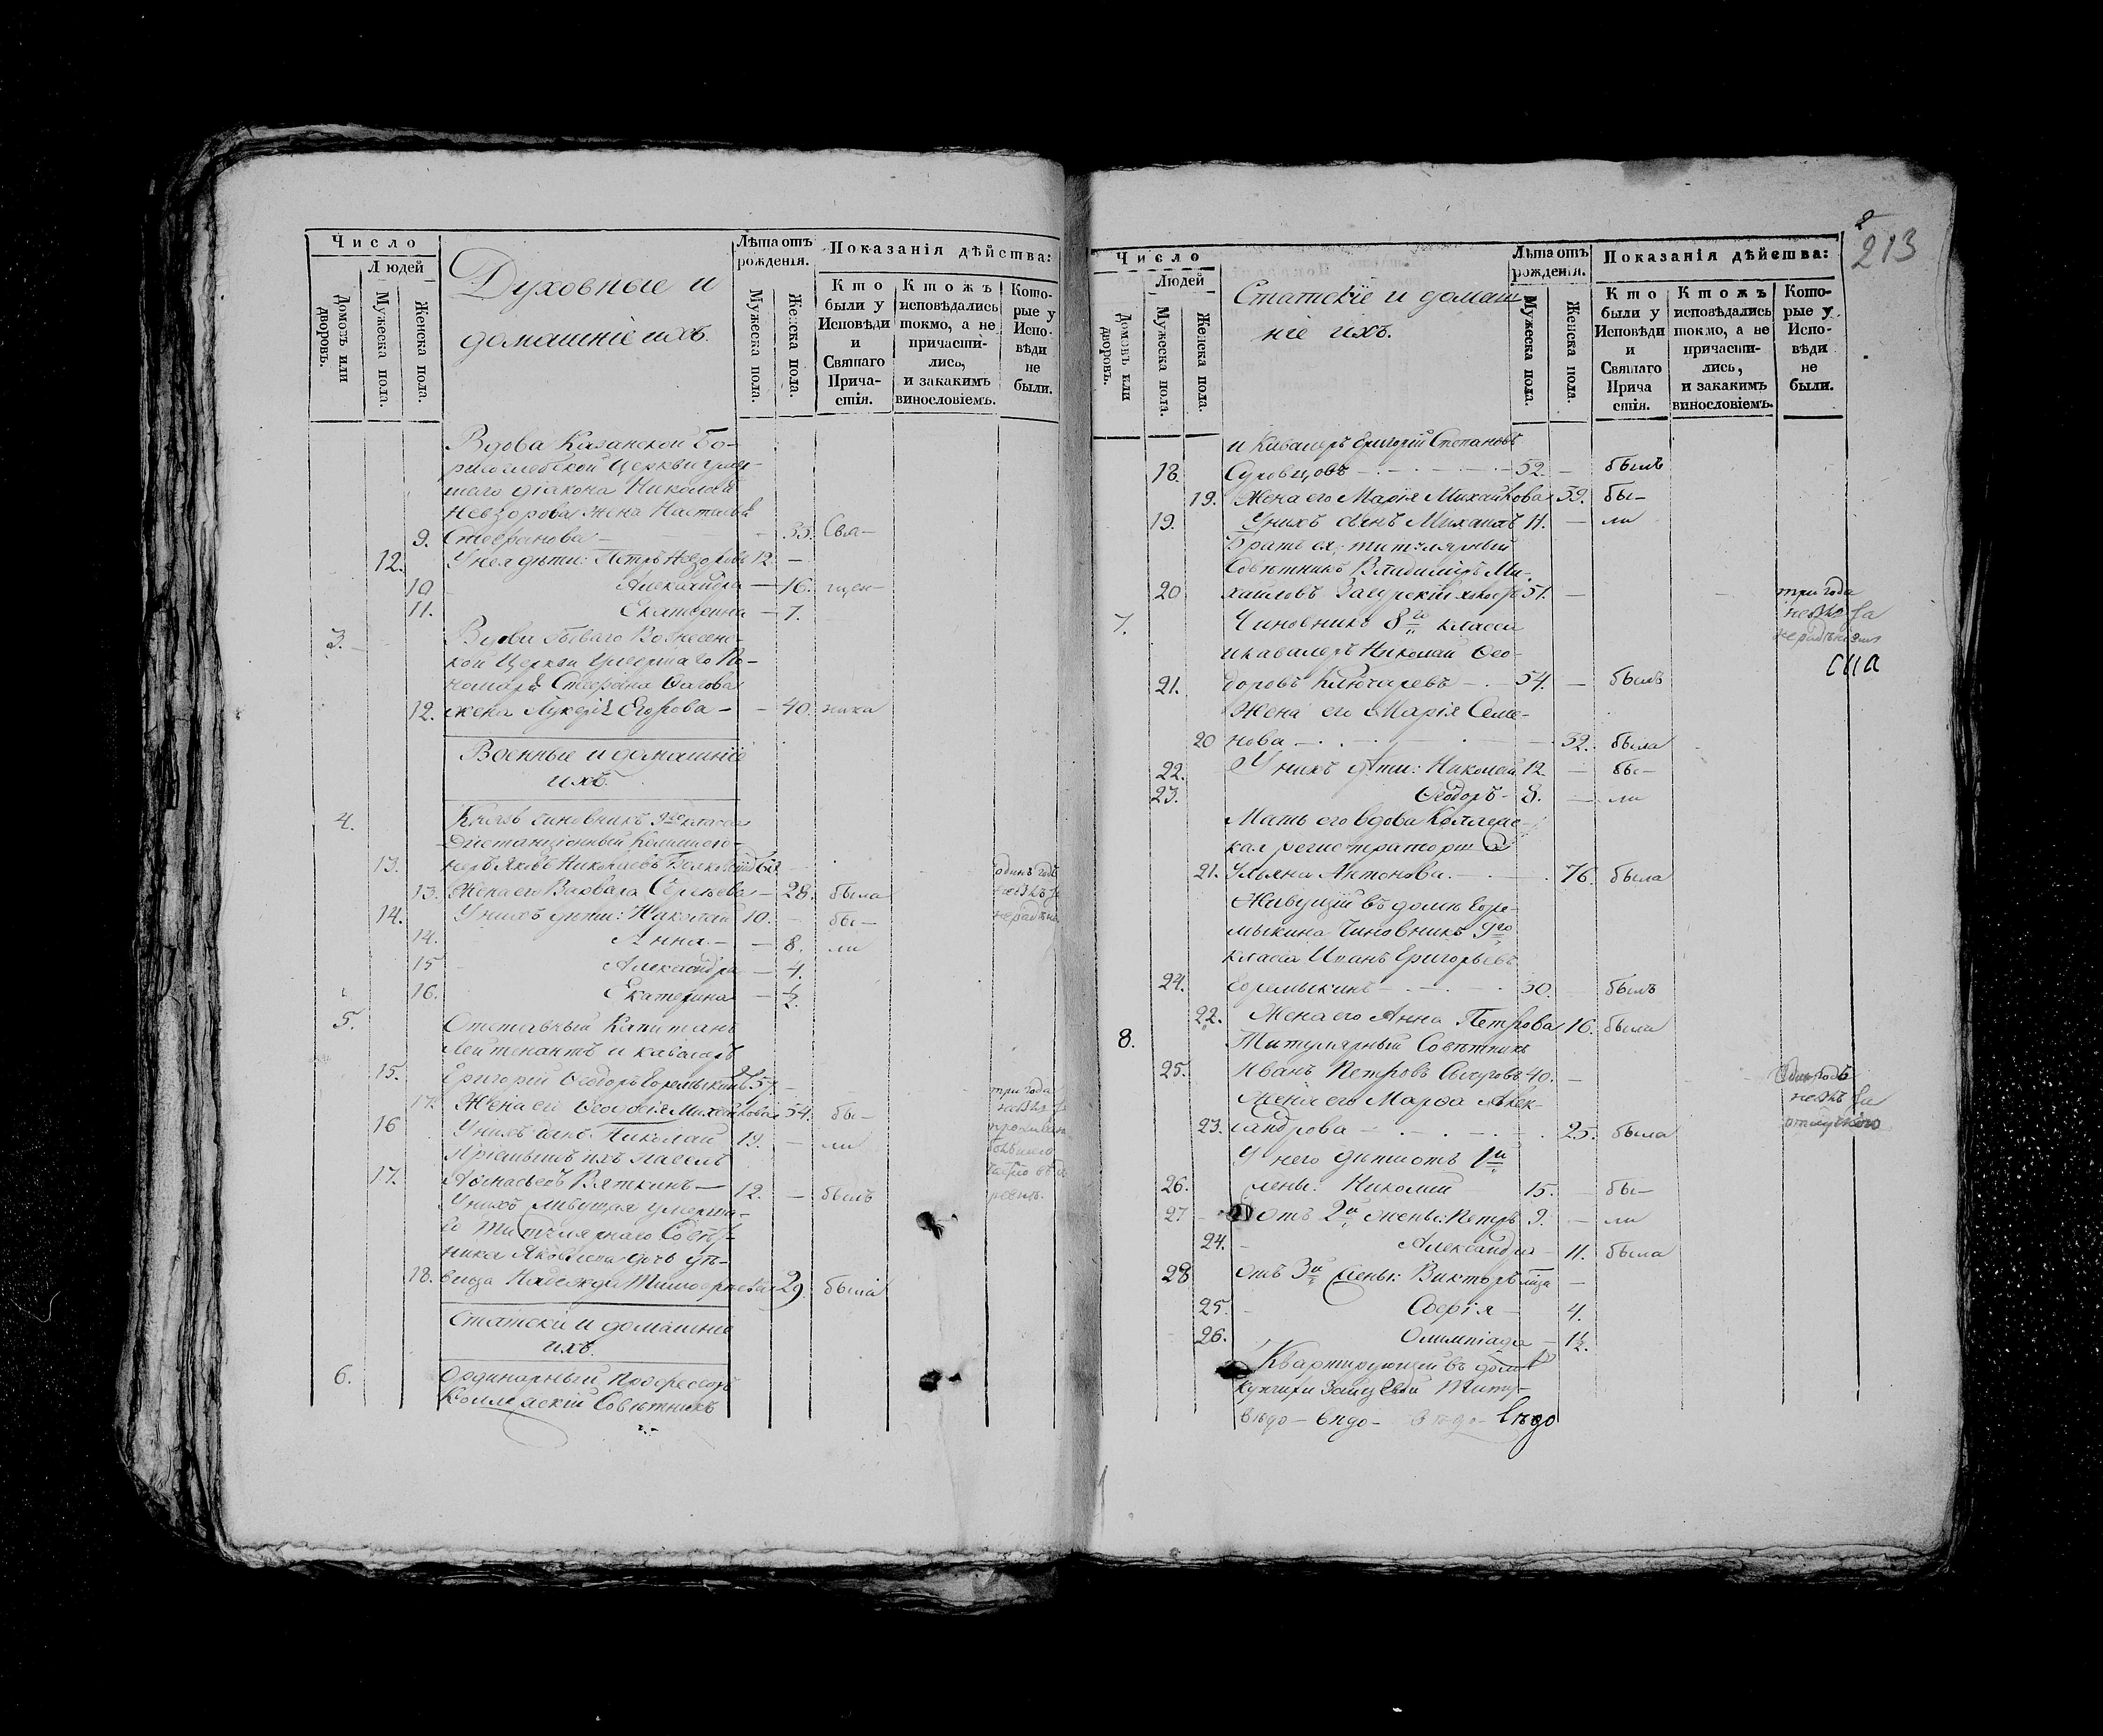 Число
Людей
Домовъ или дворовъ.
Мужеска пола.
Женска пола.
Духовные и
домашніе ихъ.
Лѣта отъ рожденія.
Мужеска пола.
Женска пола.
Показанія дѣйства:
Кто были у Исповѣди и Святаго Причастія.
Ктожъ исповѣдались токмо, а не причастились, и закакимъ винословіемъ.
Которые у Исповѣди не были.
Вдова Казанской Бо-
рисоглебской Церкви умер-
шаго діакона Николая
Невзорова жена Наталья
9. Стефанова — 35. Свя-
12. У нея дѣти: Петръ Невзоровъ 12. —
10 Александра — 16. щен-
11. Екатерина — 7.
3. Вдова бываго Вознесенс-
кой Церкви умершаго По-
номаря Стефана
12. жена Лукерія Егорова — 40. ника
Военные и домашніе
ихъ.
4. Князь чиновникъ 9го класса
Дистанціонный Коммисіо-
13. неръ Яковъ Николаевъ 60. — одинъ годъ
13. Жена его Варвара Сергѣева — 28. была
14. У нихъ дѣти: Николай 10. — бы-
14. Анна — 8. ли
15 Александра — 4.
16. Екатерина — ½.
5. Отставный Капитанъ
Лейтенантъ и кавалеръ
15. Григорій Ѳедоръ Еремыкинъ 57. — три года
17. Жена его Ѳеодосія Михайлова 54. бы-
16 У нихъ сынъ Николай 19. — ли
Пріемышъ ихъ Павелъ
17. Аѳанасьевъ Вяткинъ — 12. — былъ
У нихъ живущая умерша-
го Титулярнаго Совѣт-
ника Яковлева дочь дѣ-
18. вица Надежда 29. была
Статскіе и домашніе
ихъ.
6. Ординарный Профессоръ
Коллежскій Совѣтникъ
213
Число
Людей
Домовъ или дворовъ.
Мужеска пола.
Женска пола.
Статскіе и домаш-
ніе ихъ.
Лѣта отъ рожденія.
Мужеска пола.
Женска пола.
Показанія дѣйства:
Кто были у Исповѣди и Святаго Причастія.
Ктожъ исповѣдались токмо, а не причастились, и закакимъ винословіемъ.
Которые у Исповѣди не были.
и Кавалеръ Григорій Степановъ
18. Суровцовъ — 52. — былъ
19. Жена его Марія Михайлова 39. бы-
19. У нихъ сынъ Михаилъ 11. — ли
Братъ ея, титулярный
Совѣтникъ Владиміръ Ми-
20 хаиловъ 51. — три года
7. Чиновникъ 8го класса
и кавалеръ Николай Ѳео-
21. доровъ Ключаревъ — 54. — былъ
Жена его Марія Семе-
20 нова — 32. была
22. У нихъ дѣти: Николай 12 — бы-
23. Ѳеодоръ — 8. — ли
Мать его вдова Коллежс-
кая регистраторша
21. Ульяна Антонова — 76. была
Живущій въ домѣ Ере-
мыкина Чиновникъ 9го
класса Иванъ Григорьевъ
24. Еремыкинъ — 30. — былъ
22. Жена его Анна Петрова 16. была
8. Титулярный Совѣтникъ
25. Иванъ Петровъ 40. — Одинъ годъ
Жена его Марѳа Алек-
23. сандрова — 25. была
У него дѣти отъ 1й
26. жены: Николай 15. — бы-
27 отъ 2й жены: Петръ 9. — ли
24. Александра — 11. была
28 отъ 3й жены: Викторъ —
25. Софія — 4.
26. Олимпіада — 1½.
Квартирующій въ домѣ
Титу-